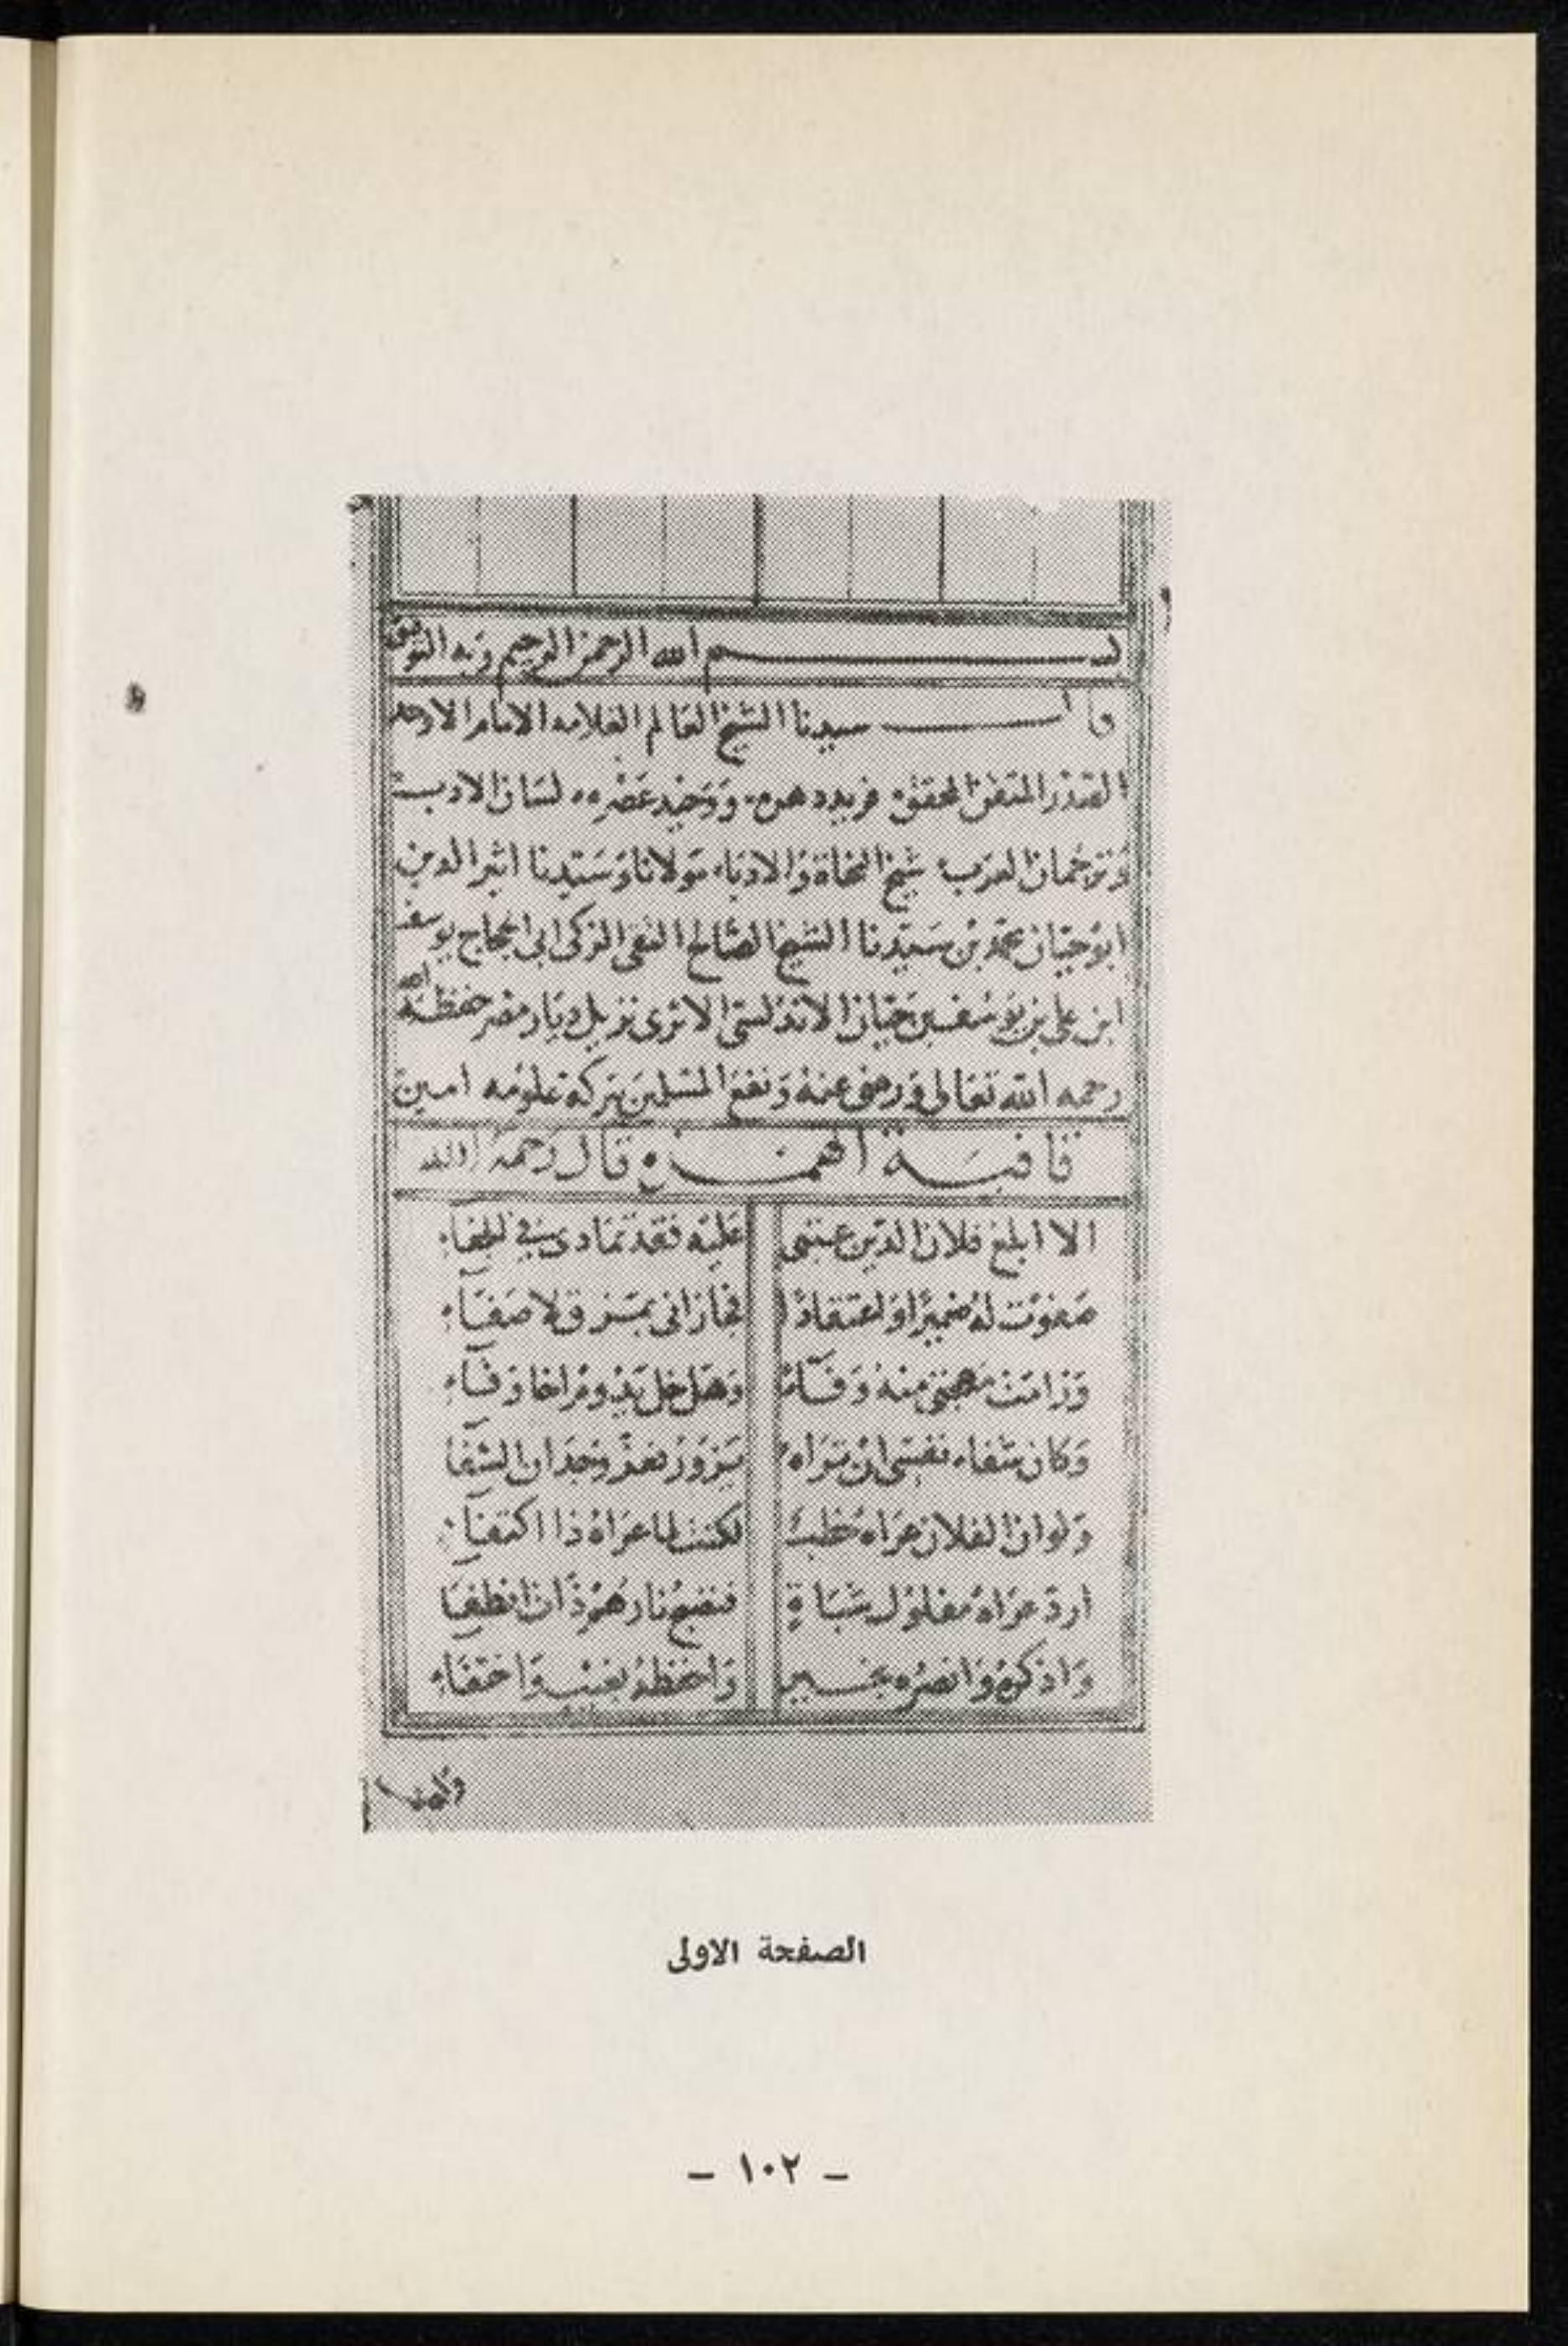 بسم الله الرحمن الرحيم وبه التوفيق
قال سيدنا الشيخ العالم العلامه الامام الاوحد
المتفنن المحقق فريد دهره ووحيد عصره لسان الادب
وترجمان العرب شيخ النحاة والادباء مولانا وسيدنا اثير الدين
ابو حيان محمد بن سيدنا الشيخ الصالح التقى الزكى ابى الحجاج يوسف
ابن على بن يوسف بن حيان الاندلسى الاثرى نزيل ديار مصر حفظه الله
رحمه الله تعالى ورضى عنه ونفع المسلمين ببركة علومه امين
قافية الهمزة قال رحمه الله
الا ابلغ فلان الدين عتبى عليه فقد تمادى فى الجفاء
صفوت له ضميرا واعتقادا فجازانى بمذق لا صفاء
ورامت مهجتى منه وفاء وهل خل يدوم اخا وفاء
وكان شفاء نفسى ان تراه يزور فعز وجدان الشفا
ولو ان الفلان عراه خطب لكنت لما عراه ذا اكتفاء
ارد عراه مفلول شباة
واذكره وانصره بخير واحفظه بغيب واختفاء
الصفحة الاولى
– ١٠٢ –